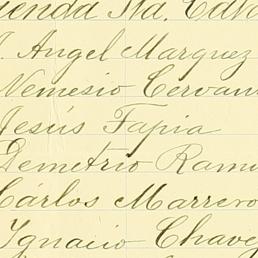 ienda Sta. Edu
J. Angel Marquez
Nemesio Cervan
Jesús Fapia
Demetrio Rami
Cárlos Marrero
Ignacio Chavez